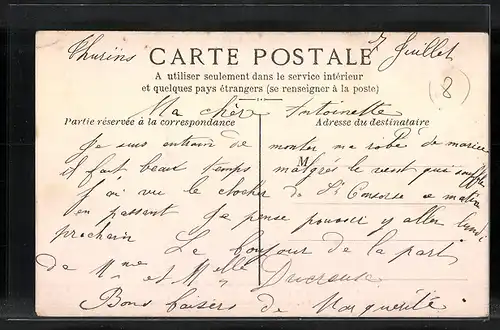 Thurins
7 Juillet
CARTE POSTALE
A utiliser seulement dans le service intérieur
et quelques pays étrangers (se renseigner à la poste)
8
Ma chère Antoinette
Partie réservée à la correspondance
Adresse du destinataire
Je suis entrain de monter ma robe de mariée
M
il fait beau temps malgrés le vent qui souffle
J'ai vu le clocher de St Consorce ce matin
en passant Je pense pouvoir y aller lundi
prochain Le bonjour de la part
de Mme et Melle Ducreuse
Bons baisers de Marguerite